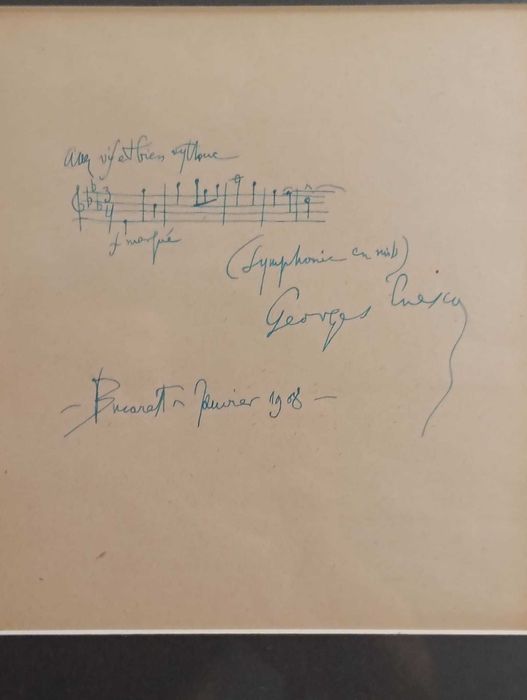 Assez vif et bien rythmé
3
4
f marqué
(Symphonie en mi♭)
Georges Enesco
— Bucarest Janvier 1908 —